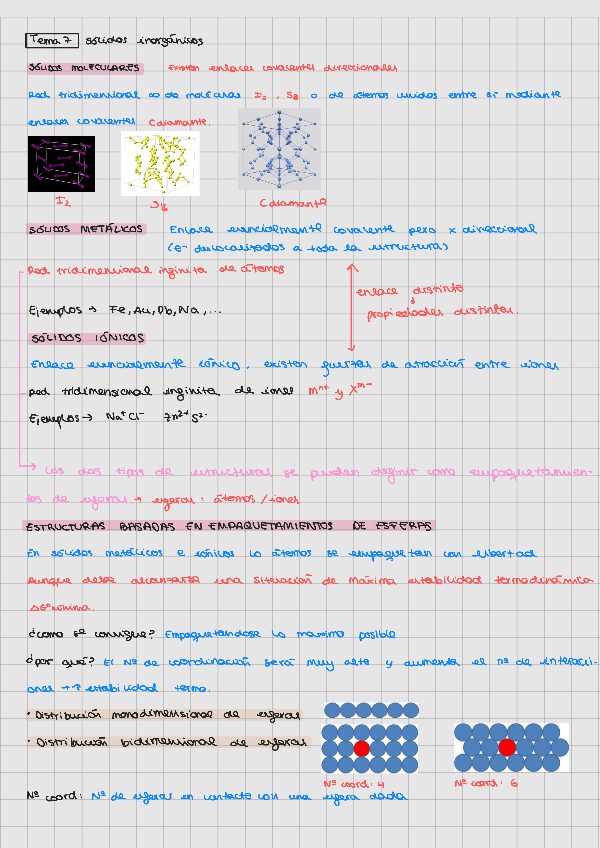 Tema 7 sólidos inorgánicos
SÓLIDOS MOLECULARES Existen enlaces covalentes direccionales
Red tridimensional ∞ de moléculas I2, S8 o de átomos unidos entre sí mediante
enlaces covalentes Cdiamante.
I2 S8 Cdiamante
SÓLIDOS METÁLICOS Enlace esencialmente covalente pero x direccional
(e- deslocalizados a toda la estructura)
Red tridimensional infinita de átomos
enlace distinto
↓
propiedades distintas.
Ejemplos → Fe, Au, Pb, Na, ...
SÓLIDOS IÓNICOS
Enlace esencialmente iónico, existen fuerzas de atracción entre iones
Red tridimensional infinita de iones Mn+ y Xm-
Ejemplos → Na+Cl- Zn2+S2-
→ Los dos tipos de estructuras se pueden definir como empaquetamien-
tos de esferas → esferas: átomos/iones
ESTRUCTURAS BASADAS EN EMPAQUETAMIENTOS DE ESFERAS
En sólidos metálicos e iónicos lo átomos se empaquetan con libertad
Aunque debe alcanzarse una situación de máxima estabilidad termodinámica
ΔG° mínima.
¿Cómo se consigue? Empaquetándose lo máximo posible
¿Por qué? El Nº de coordinación será muy alto y aumenta el nº de interacci-
ones → ↑ estabilidad termo.
· Distribución monodimensional de esferas
· Distribución bidimensional de esferas
Nº coord: 4 Nº coord: 6
Nº coord: Nº de esferas en contacto con una esfera dada